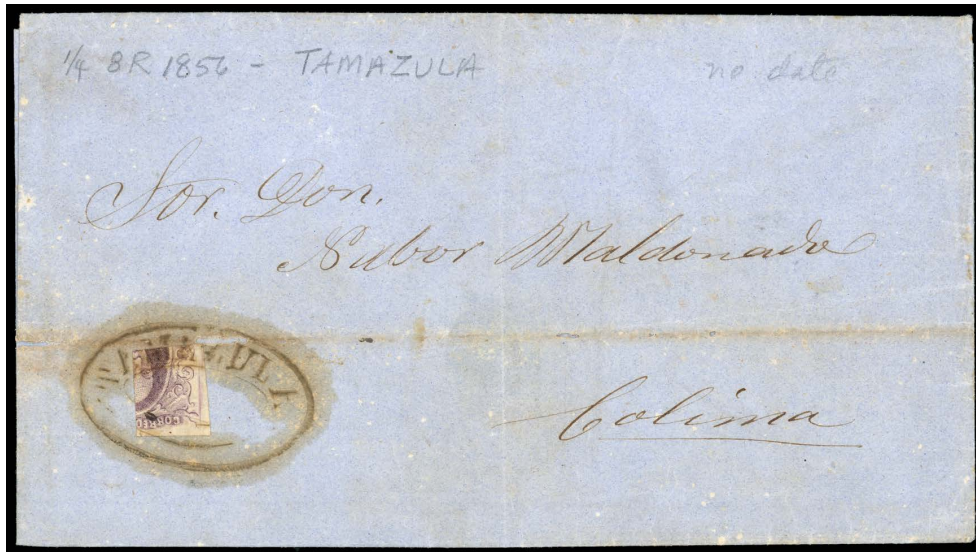 1/4 8R 1856 - TAMAZULA
no date
Sor. Don.
Nabor Maldonado
TAMAZULA
CORREO
Colima